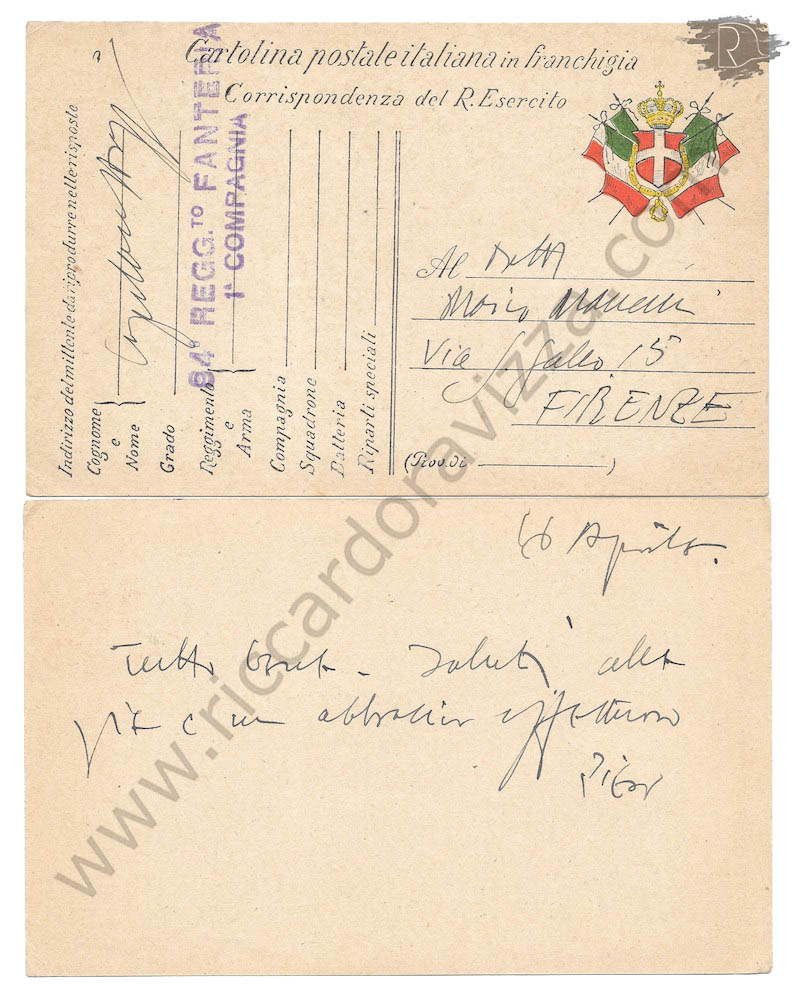 Cartolina postale italiana in franchigia
Corrispondenza del R. Esercito
Indirizzo del mittente da riprodurre nelle risposte
Cognome e Nome
Grado
Reggimento e Arma
84º REGG.TO FANTERIA
1ª COMPAGNIA
Compagnia
Squadrone
Batteria
Riparti speciali
Al Dott
Mario
Via S. Gallo 15
FIRENZE
(Prov. di )
Aprile.
Tutto bene - Saluti alla
e un abbraccio affettuoso
www.riccardoravizza.com